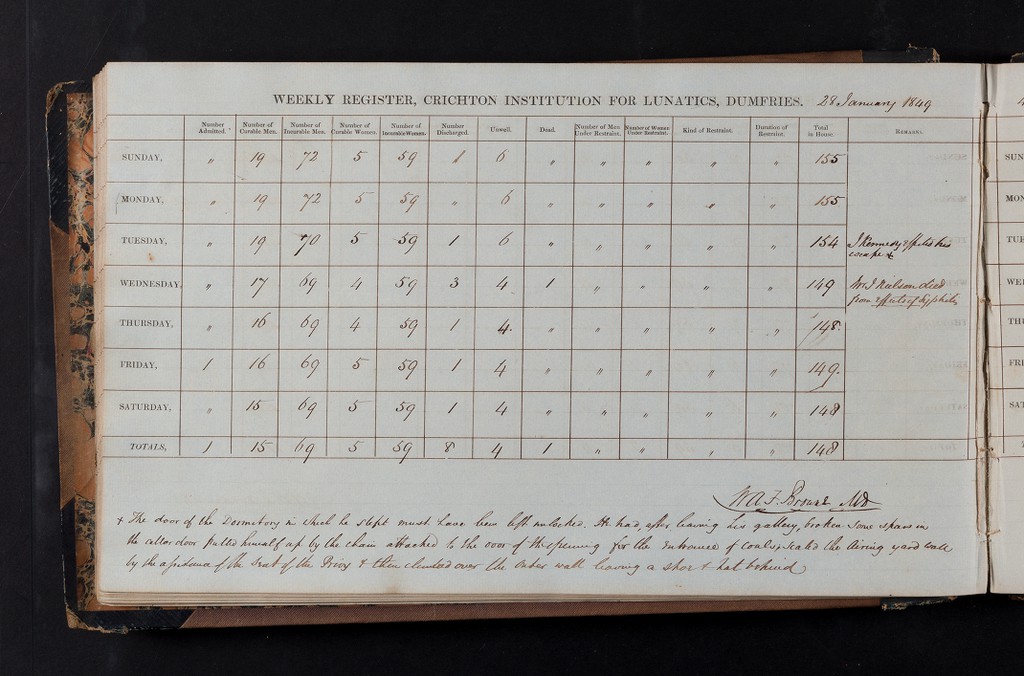 WEEKLY REGISTER, CRICHTON INSTITUTION FOR LUNATICS, DUMFRIES. 28 January 1849
Number Admitted. Number of Curable Men. Number of Incurable Men. Number of Curable Women. Number of Incurable Women. Number Discharged. Unwell. Dead. Number of Men Under Restraint. Number of Women Under Restraint. Kind of Restraint. Duration of Restraint. Total in House. Remarks.
SUNDAY, " 19 72 5 59 1 6 " " " " " 155
MONDAY, " 19 72 5 59 " 6 " " " " " 155
TUESDAY, " 19 70 5 59 1 6 " " " " " 154 J Kennedy effected his
escape +
WEDNESDAY, " 17 69 4 59 3 4 1 " " " " 149 Wm J Neilson died
from effects of Syphilis
THURSDAY, " 16 69 4 59 1 4. " " " " " 148.
FRIDAY, 1 16 69 5 59 1 4 " " " " " 149.
SATURDAY, " 15 69 5 59 1 4 " " " " " 148
TOTALS, 1 15 69 5 59 8 4 1 " " , " 148
W A F Browne MD
+ The door of the Dormitory in which he slept must have been left unlocked. He had, after leaving his gallery, broken some spars in
the cellar door pulled himself up by the chain attached to the door of the opening for the entrance of coals; scaled the Airing yard wall
by the assistance of the Seat of the Privy & then climbed over the outer wall leaving a shoe & hat behind
SUN
MON
TUE
WE
THU
FRI
SAT